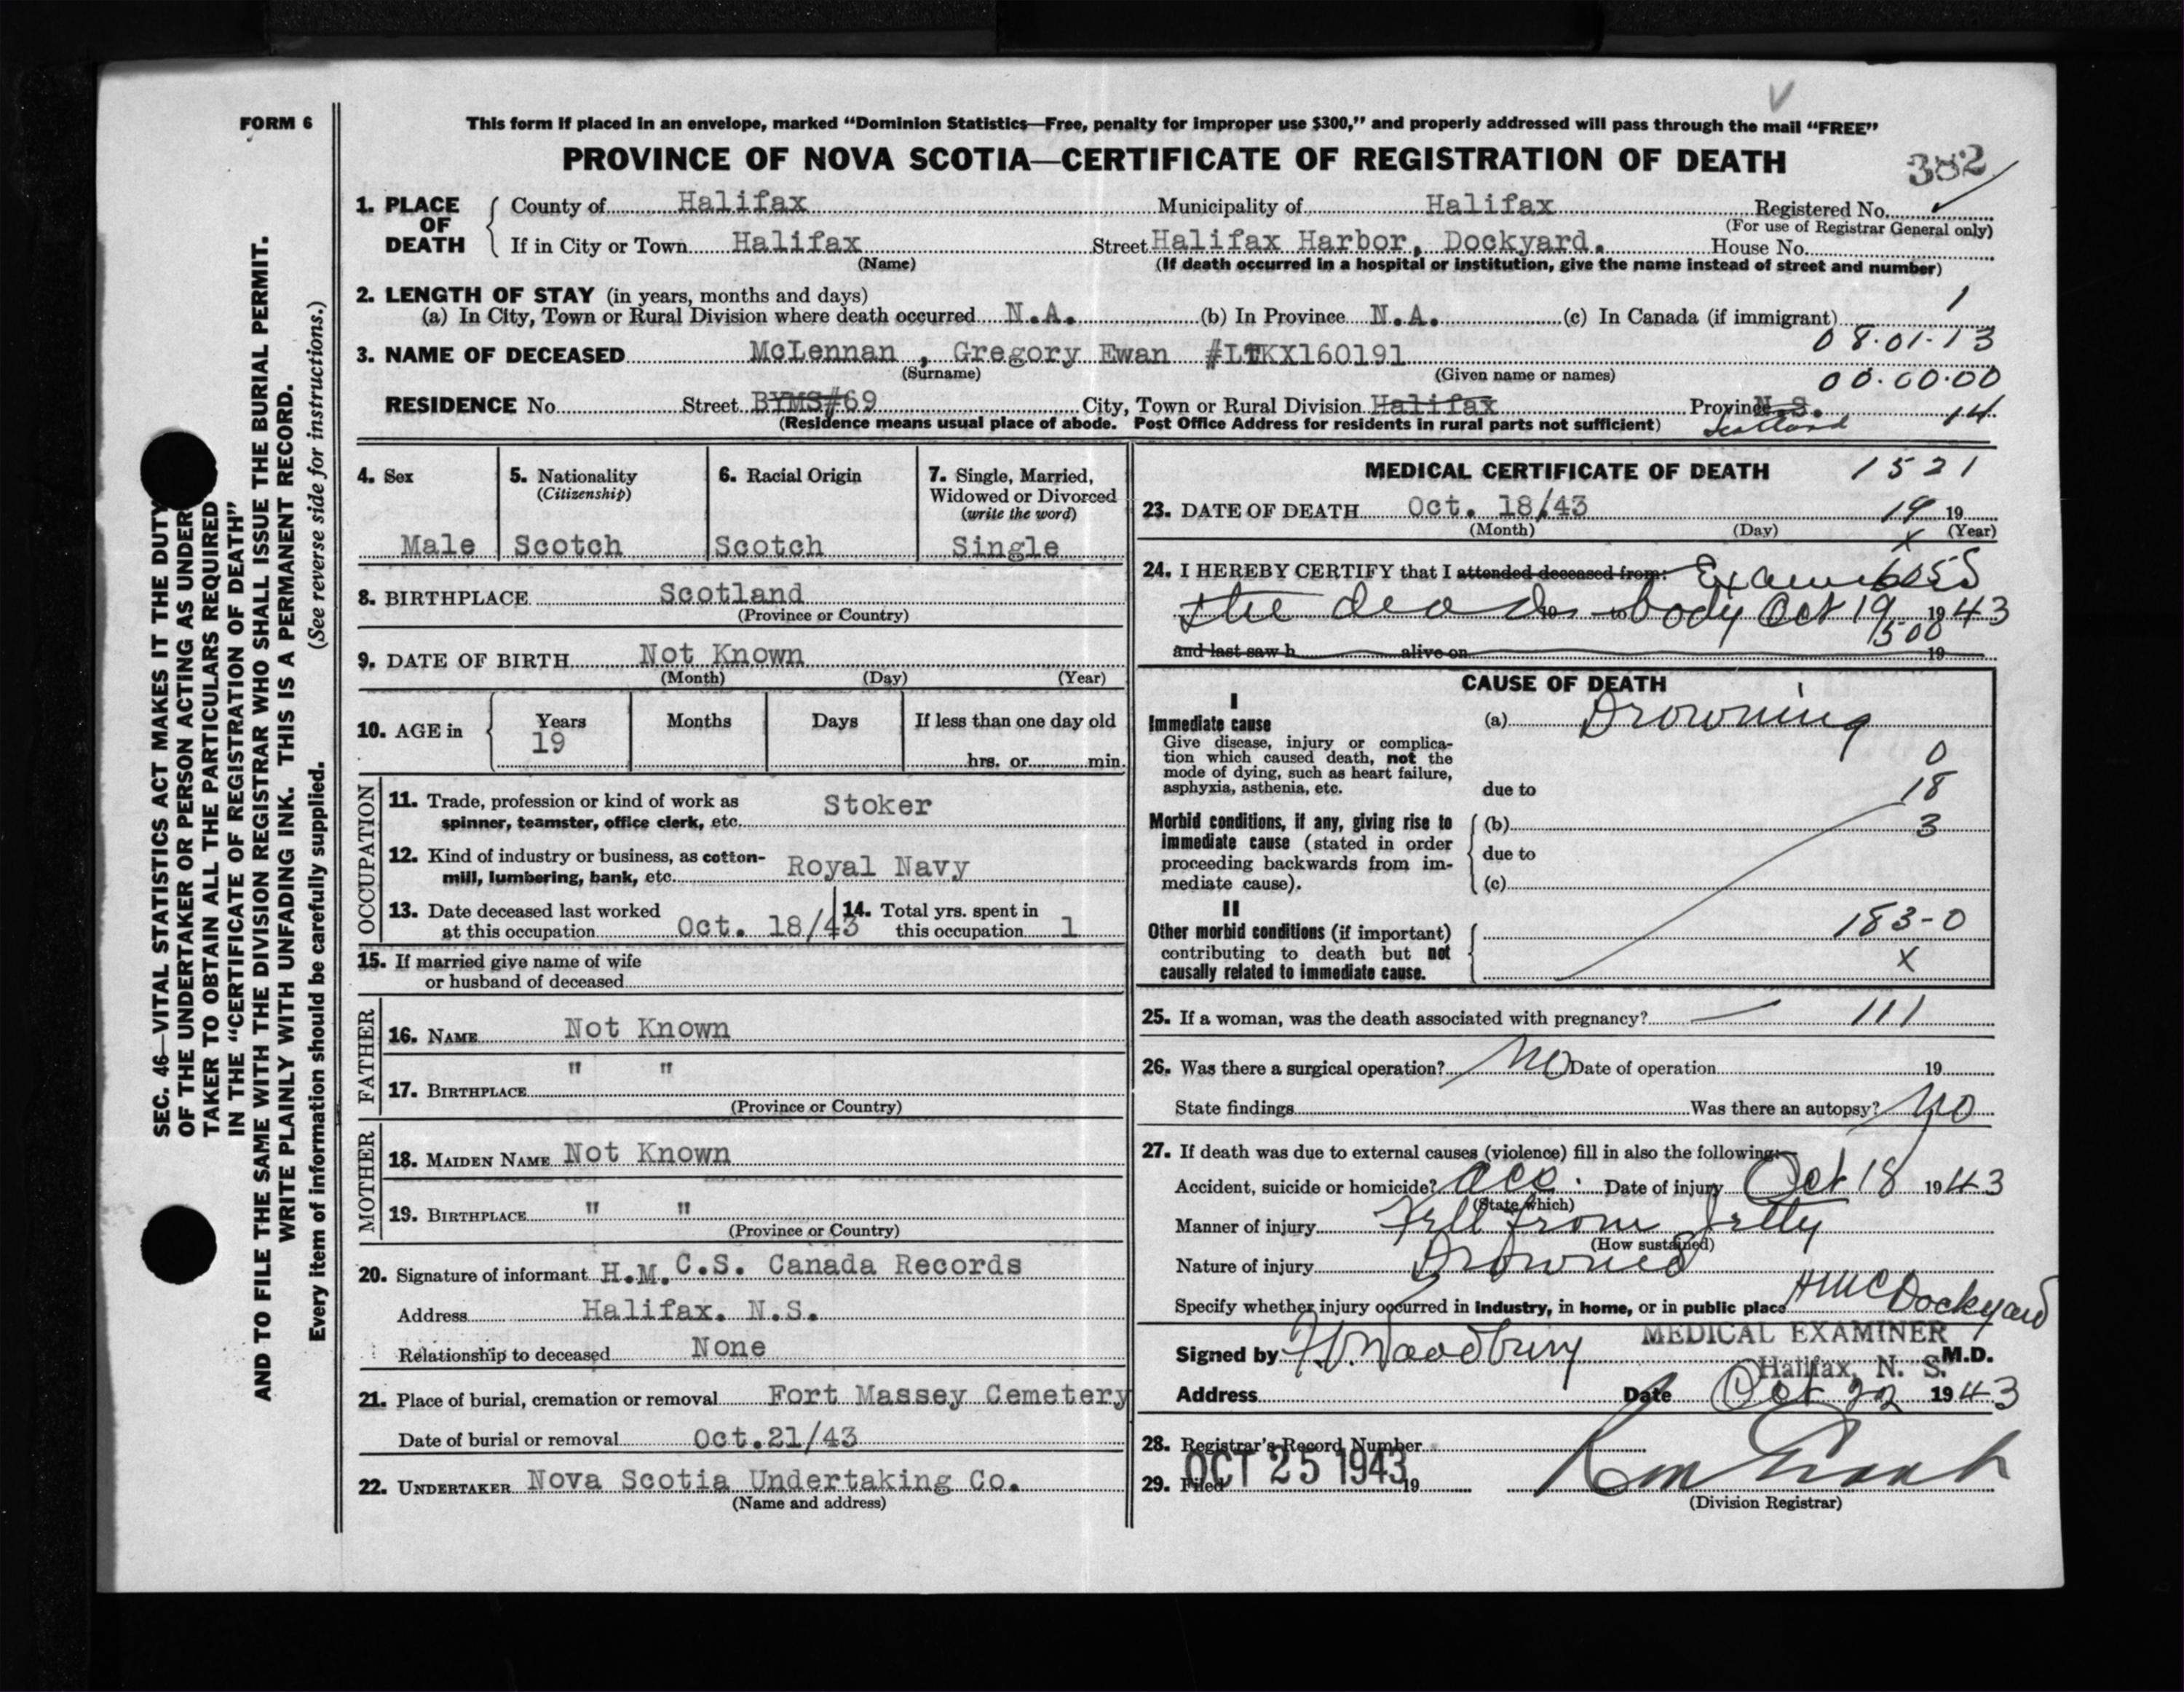 FORM 6
This form if placed in an envelope, marked “Dominion Statistics—Free, penalty for improper use $300,” and properly addressed will pass through the mail “FREE”
PROVINCE OF NOVA SCOTIA—CERTIFICATE OF REGISTRATION OF DEATH
382
1. PLACE OF DEATH
County of Halifax Municipality of Halifax Registered No.
(For use of Registrar General only)
If in City or Town Halifax Street Halifax Harbor, Dockyard. House No.
(Name) (If death occurred in a hospital or institution, give the name instead of street and number)
2. LENGTH OF STAY (in years, months and days) 1
(a) In City, Town or Rural Division where death occurred N.A. (b) In Province N.A. (c) In Canada (if immigrant)
08.01.13
3. NAME OF DECEASED McLennan , Gregory Ewan #LTKX160191
(Surname) (Given name or names) 00.00.00
RESIDENCE No. Street BYMS#69 City, Town or Rural Division Halifax Province N.S. 14
(Residence means usual place of abode. Post Office Address for residents in rural parts not sufficient) Scotland
4. Sex Male
5. Nationality (Citizenship) Scotch
6. Racial Origin Scotch
7. Single, Married, Widowed or Divorced (write the word) Single
8. BIRTHPLACE Scotland
(Province or Country)
9. DATE OF BIRTH Not Known
(Month) (Day) (Year)
10. AGE in Years 19 Months Days If less than one day old
hrs. or min.
OCCUPATION
11. Trade, profession or kind of work as spinner, teamster, office clerk, etc. Stoker
12. Kind of industry or business, as cotton-mill, lumbering, bank, etc. Royal Navy
13. Date deceased last worked at this occupation Oct. 18/43
14. Total yrs. spent in this occupation 1
15. If married give name of wife
or husband of deceased
FATHER
16. NAME Not Known
17. BIRTHPLACE " "
(Province or Country)
MOTHER
18. MAIDEN NAME Not Known
19. BIRTHPLACE " "
(Province or Country)
20. Signature of informant H.M.C.S. Canada Records
Address Halifax. N.S.
Relationship to deceased None
21. Place of burial, cremation or removal Fort Massey Cemetery
Date of burial or removal Oct.21/43
22. UNDERTAKER Nova Scotia Undertaking Co.
(Name and address)
MEDICAL CERTIFICATE OF DEATH 1521
23. DATE OF DEATH Oct. 18/43 19 19
(Month) (Day) (Year)
x
24. I HEREBY CERTIFY that I attended deceased from:
the dead body Oct 19 1943
500
and last saw h alive on 19
CAUSE OF DEATH
I
Immediate cause (a) Drowning
Give disease, injury or complica-
tion which caused death, not the 0
mode of dying, such as heart failure,
asphyxia, asthenia, etc. due to 18
Morbid conditions, if any, giving rise to (b) 3
immediate cause (stated in order due to
proceeding backwards from im-
mediate cause). (c)
II
Other morbid conditions (if important) 183-0
contributing to death but not
causally related to immediate cause. x
25. If a woman, was the death associated with pregnancy? — 111
26. Was there a surgical operation? No Date of operation 19
State findings Was there an autopsy? No
27. If death was due to external causes (violence) fill in also the following:
Accident, suicide or homicide? acc. Date of injury Oct 18 1943
(State which)
Manner of injury Fell from Jetty
(How sustained)
Nature of injury Drowned
Specify whether injury occurred in industry, in home, or in public place HMC Dockyard
MEDICAL EXAMINER
Signed by Woodbury M.D.
Halifax, N. S.
Address Date Oct 22 1943
28. Registrar's Record Number
29. Filed OCT 25 1943 19
(Division Registrar)
SEC. 46—VITAL STATISTICS ACT MAKES IT THE DUTY
OF THE UNDERTAKER OR PERSON ACTING AS UNDER
TAKER TO OBTAIN ALL THE PARTICULARS REQUIRED
IN THE “CERTIFICATE OF REGISTRATION OF DEATH”
AND TO FILE THE SAME WITH THE DIVISION REGISTRAR WHO SHALL ISSUE THE BURIAL PERMIT.
WRITE PLAINLY WITH UNFADING INK. THIS IS A PERMANENT RECORD.
Every item of information should be carefully supplied. (See reverse side for instructions.)